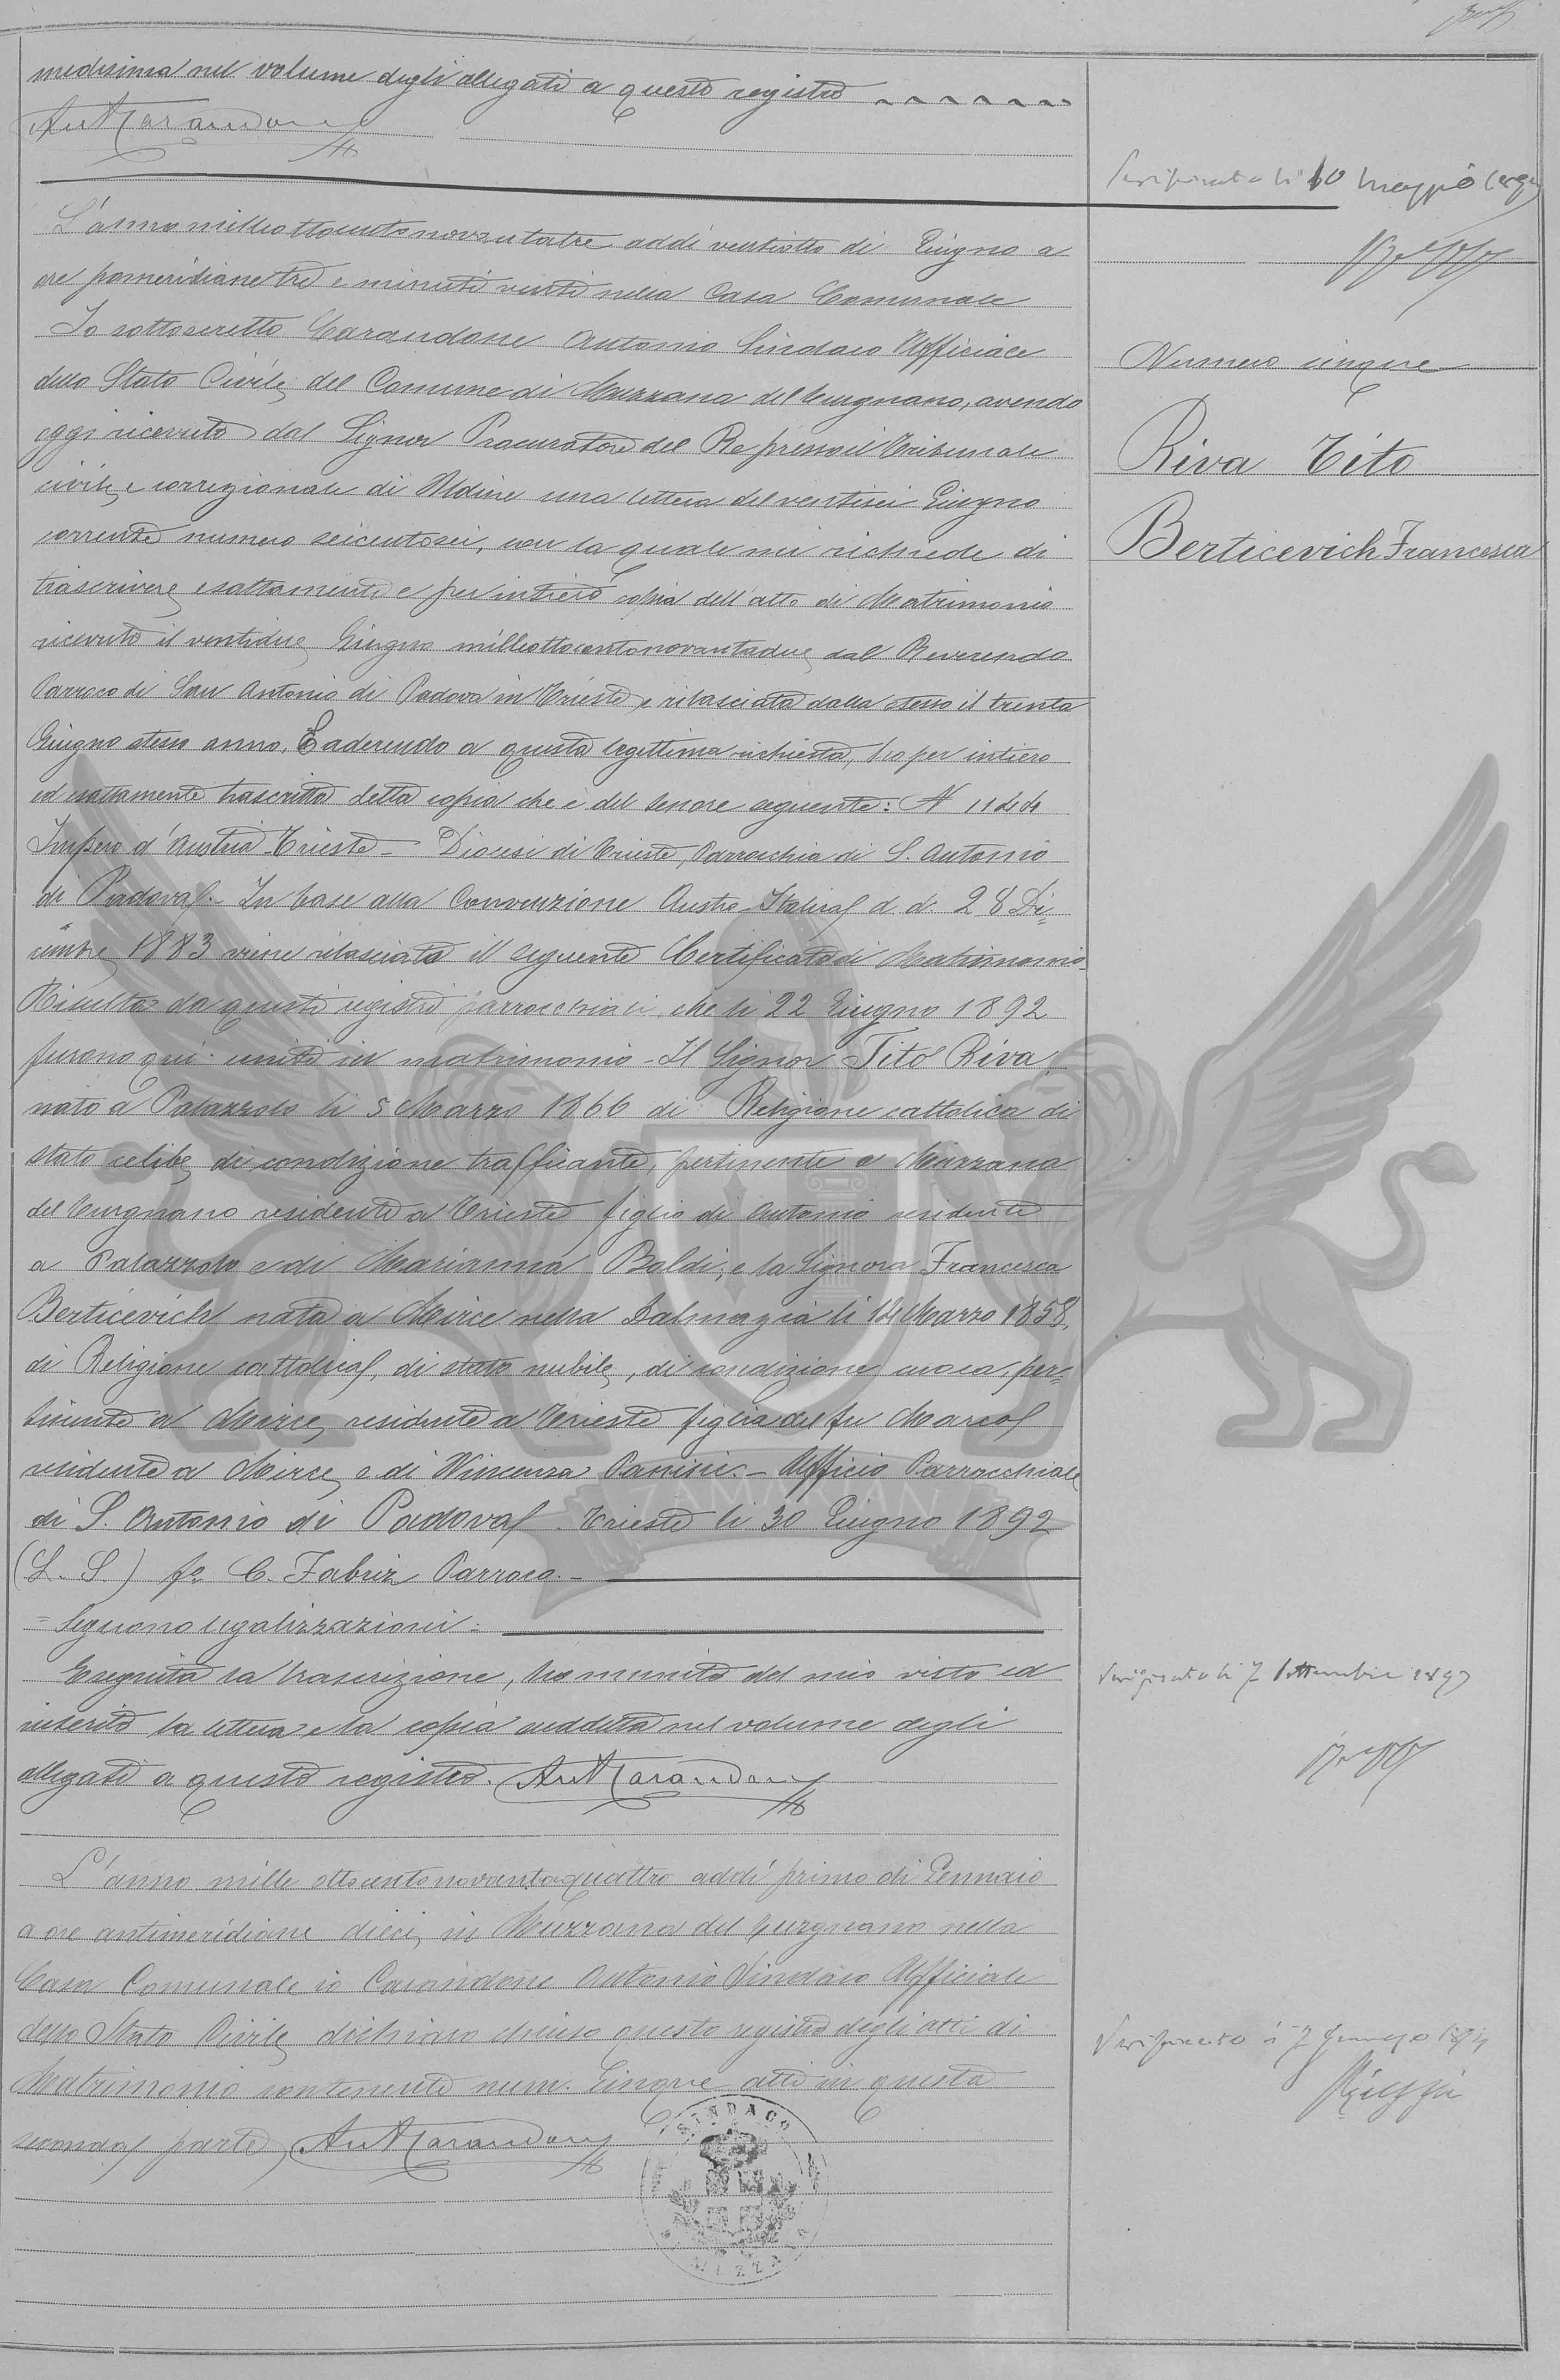 medesima nel volume degli allegati a questo registro
AntCarandone
Verificato li 10 Maggio
L'anno milleottocentonovantatre addi ventiotto di Giugno a
ore pomeridiane tre e minuti venti nella Casa Comunale
Io sottoscritto Carandone Antonio Sindaco Ufficiale
dello Stato Civile del Comune di Muzzana del Turgnano, avendo
oggi ricevuto dal Signor Procuratore del Re presso il Tribunale
civile e correzionale di Udine una lettera del ventisei Giugno
corrente numero seicentosei, con la quale mi richiede di
trascrivere esattamente e per intiero copia dell'atto di Matrimonio
ricevuto il ventidue Giugno milleottocentonovantadue dal Reverendo
Parroco di San Antonio di Padova in Trieste, e rilasciata dallo stesso il trenta
Giugno stesso anno. E aderendo a questa legittima richiesta, ho per intiero
ed esattamente trascritta detta copia che è del tenore seguente: N 1144
Impero d'Austria - Trieste - Diocesi di Trieste, Parrocchia di S. Antonio
di Padova - In base alla Convenzione Austro-Italica d. d. 28 Di=
cembre 1883 viene rilasciato il seguente Certificato di Matrimonio
Risulta da questi registri parrocchiali, che li 22 Giugno 1892
furono qui uniti in matrimonio - Il Signor Tito Riva
nato a Palazzolo li 5 Marzo 1866 di Religione cattolica di
stato celibe, di condizione trafficante, pertinente a Muzzana
del Turgnano residente a Trieste figlio di Antonio residente
a Palazzolo e di Marianna Baldi, e la Signora Francesca
Berticevich nata a Mirce nella Dalmazia li 14 Marzo 1858,
di Religione cattolica, di stato nubile, di condizione cuoca, per=
tinente a Mirce, residente a Trieste figlia del fu Marco
residente a Mirce e di Vincenza Panisic. - Ufficio Parrocchiale
di S. Antonio di Padova. Trieste li 30 Giugno 1892
(L. S.) fo C. Fabriz Parroco. -
= Seguono legalizzazioni =
Eseguita la trascrizione, ho munito del mio visto ed
inserito la lettera e la copia suddetta nel volume degli
allegati a questo registro. AntCarandone
L'anno mille ottocentonovantaquattro addi primo di Gennaio
a ore antimeridiane dieci, in Muzzana del Turgnano nella
Casa Comunale io Carandone Antonio Sindaco Ufficiale
dello Stato Civile dichiaro chiuso questo registro degli atti di
Matrimonio contenente num. Cinque atti in questa
seconda parte, AntCarandone
SINDACO
Numero cinque
Riva Tito
Berticevich Francesca
Verificato li 7 Settembre 1893
Verificato li 7 Gennajo 1894
ZAMARIAN